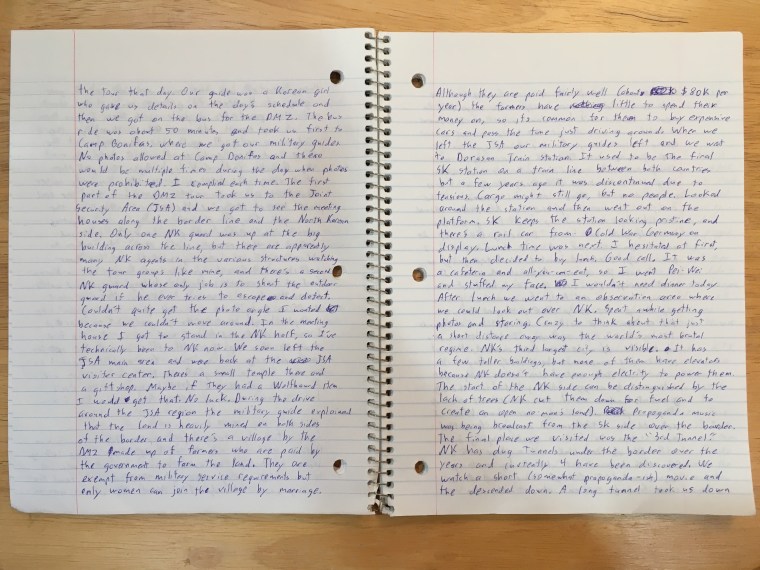 the tour that day. Our guide was a Korean girl
who gave us details on the day's schedule and
then we got on the bus for the DMZ. The bus
ride was about 50 minutes and took us first to
Camp Bonifas, where we got our military guides.
No photos allowed at Camp Bonifas and there
would be multiple times during the day when photos
were prohibited. I complied each time. The first
part of the DMZ tour took us to the Joint
Security Area (JSA) and we got to see the meeting
houses along the border line and the North Korean
side. Only one NK guard was up at the big
building across the line, but there are apparently
many NK agents in the various structures watching
the tour groups like mine, and there's a second
NK guard whose only job is to shoot the outdoor
guard if he ever tries to escape and defect.
Couldn't quite get the photo angle I wanted
because we couldn't move around. In the meeting
house I got to stand in the NK half, so I've
technically been to NK now. We soon left the
JSA main area and were back at the JSA
visitor center. There's a small temple there and
a giftshop. Maybe if they had a Wolfhound item
I would get that. No luck. During the drive
around the JSA region the military guide explained
that the land is heavily mined on both sides
of the border and there's a village by the
DMZ made up of farmers who are paid by
the government to farm the land. They are
exempt from military service requirements but
only women can join the village by marriage.
Although they are paid fairly well (about $80K per
year) the farmers have little to spend their
money on, so its common for them to buy expensive
cars and pass the time just driving around. When we
left the JSA our military guides left and we went
to Dorasan Train station. It used to be the final
SK station on a train line between both countries
but a few years ago it was discontinued due to
tensions. Cargo might still go, but no people. Looked
around the station and then went out on the
platform. SK keeps the station looking pristine, and
there's a rail car from Cold War Germany on
display. Lunch time was next. I hesitated at first,
but then decided to buy lunch. Good call. It was
a cafeteria and all-you-can-eat, so I went Pei Wei
and stuffed my face. I wouldn't need dinner today.
After lunch we went to an observation area where
we could look out over N.K. Spent awhile getting
photos and staring. Crazy to think about that just
a short distance away was the world's most brutal
regime. NK's third largest city is visible. It has
a few taller buildings, but none of them have elevators
because NK doesn't have enough electricity to power them.
The start of the NK side can be distinguished by the
lack of trees (NK cut them down for fuel and to
create an open no man's land). Propaganda music
was being broadcast from the SK side over the border.
The final place we visited was the "3rd Tunnel."
NK has dug tunnels under the border over the
years and currently 4 have been discovered. We
watch a short (somewhat propaganda-ish) movie and
the descended down. A long tunnel took us down